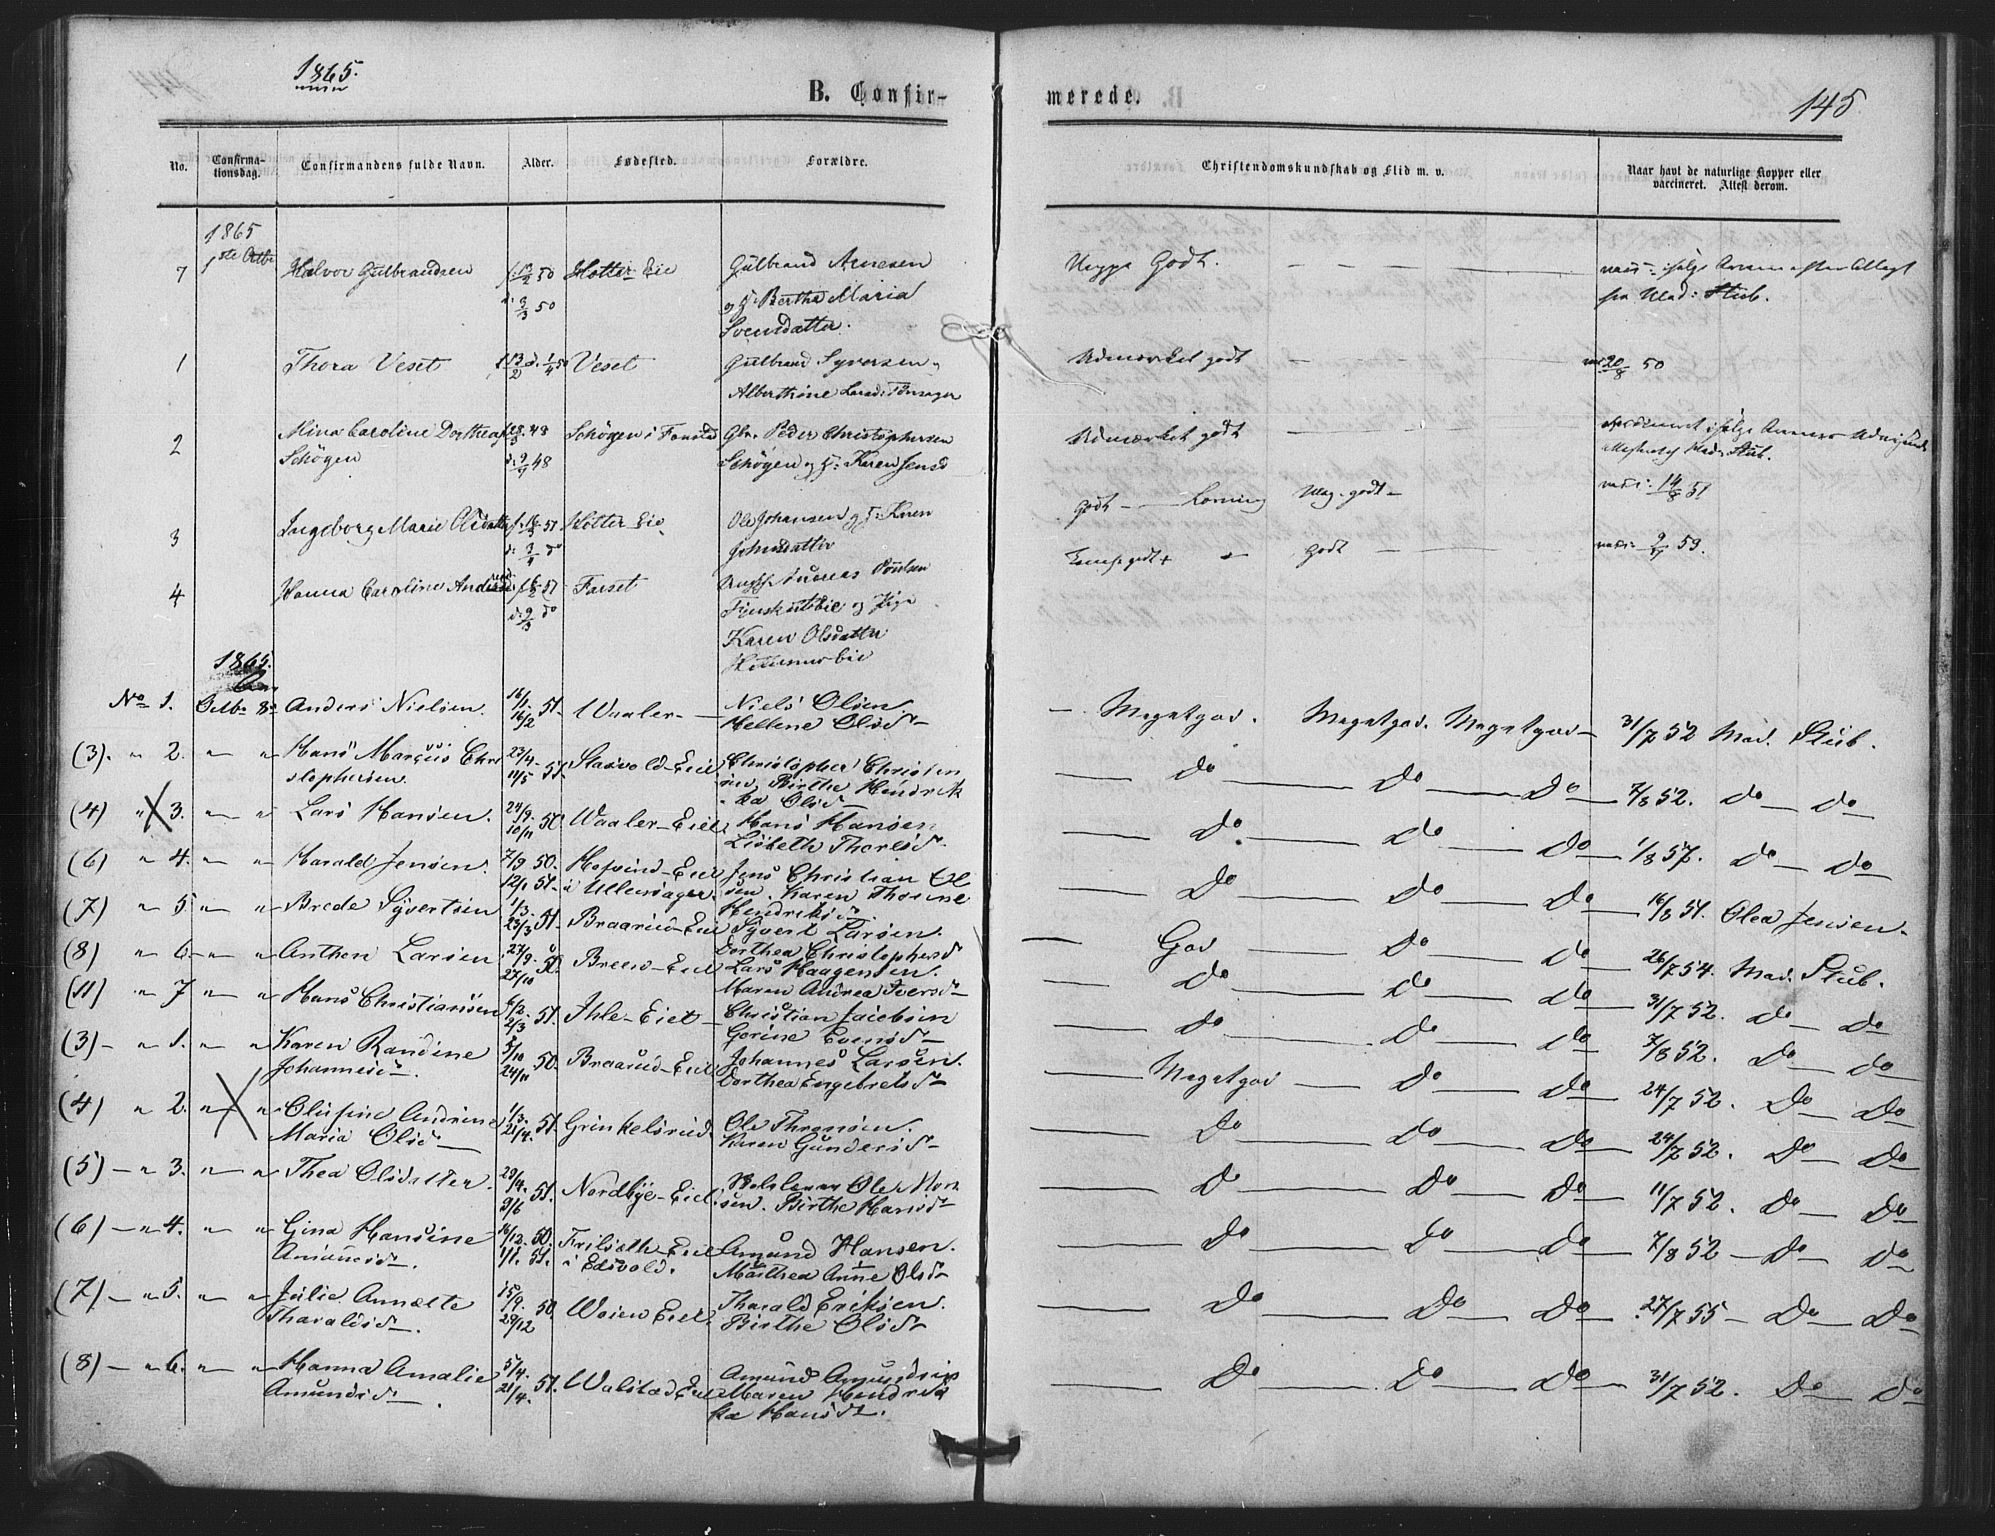 1865.
B. Confir-
merede.
145
No.
Confirma-
tionsdag.
Confirmandens fulde Navn.
Alder.
Fødested.
Forældre.
Christendomskundskab og Flid m. v.
Naar havt de naturlige Kopper eller
vaccineret. Attest derom.
1865
1ste Octb
7 Halvor Gulbrandsen 50 Hotter Eie Gulbrand Arnesen Godt.
50 og H: Bertha Maria fra Mad: Stub.
Svendsdatter.
1 Thora Veset 13/2 d. 1/4 50 Veset Gulbrand Syversen Udmærket godt 20/8 50
Alberthine
2 Mina Caroline Dorthea 48 Schøyen i Peder Christophersen Udmærket godt
Schøyen d: 9/4 48 Schøyen og H: Karen Jensd Stub.
3 Ingeborg Marie Olsdatter 51 Hotter Eie Ole Johansen og H: Karen Godt godt vacc: 14/8 51
d: do
4 Hanna Caroline 51 Farset godt godt vacc: 59.
d: 9/3 do og Pige
Karen Olsdatter
1865.
No 1. Octbr 8de Anders Nielsen. 16/1 16/2 51. Waaler Niels Olsen. Hellene Olsd. Megetgod. Megetgod. Megetgod 31/7 52 Mad. Stub.
(3). " 2. " " Hans Marcus Chri
stophersen. 23/4 11/5 51. Slasvold-Eie Christopher Christen
sen. Birthe Hendrik
ka Olsd. Do Do Do 7/8 52. Do Do
(4) " 3. " " Lars Hansen. 24/9 10/11 50. Waaler-Eiet Hans Hansen
Lisbeth Thorsd. Do. Do Do 1/8 57. Do Do
(6) " 4. " " Harald Jensen. 7/9 50. 12/1 51. Hofvind-Eiet
i Ullensager. Jens Christian Ol
sen. Karen Thorine
Hendriksd. Do Do Do 16/8 51. Olea Jensen.
(7) " 5 " " Brede Syvertsen 1/3. 23/3 51. Braarud-Eiet Syvert Larsen.
Dorthea Christophersd God Do Do 26/7 54. Mad. Stub.
(8) " 6. " " Anthon Larsen 27/9. 27/10 50. Breen-Eiet Lars Haagensen.
Maren Andrea Iversd. Do Do Do 31/7 52. Do Do
(11) " 7 " " Hans Christiansen 6/2. 2/3 51. Ihle-Eiet Christian Jacobsen
Gorine Evensd. Do Do Do 7/8 52. Do Do
(3) " 1. " " Karen Randine
Johannesd. 5/10 24/11 50. Braarud-Eiet Johannes Larsen.
Dorthea Engebretsd. Megetgod Do Do 24/7 52. Do Do
(4) " 2. " " Olufine Andrine
Maria Olsd. 1/3. 21/4. 51. Grinkelsrud. Ole Thronsen.
Karen Gundersd. Do Do Do 24/7 52. Do Do
(5) " 3. " " Thea Olsdatter. 29/4. 9/6 51. Nordbye-Eiet Ole Mor
sen. Birthe Hansd. Do Do Do 11/7 52. Do Do
(6) " 4. " " Gina Hansine
Amundsd. 16/12. 50. 1/1. 51. Frilseth-Eiet
i Edsvold. Amund Hansen.
Marthea Anne Olsd. Do Do Do 7/8 52 Do Do
(7) " 5. " " Julie Annette
Tharaldsd. 15/9. 29/12 50. Woien Eiet. Tharald Eriksen.
Birthe Olsd. Do Do Do 27/7 55 Do Do
(8) " 6. " " Hanna Amalie
Amundsd. 5/4. 21/4. 51. Walstad Eiet Amund Amundsen
Maren Hendrik
ka Hansd. Do Do Do 31/7 52. Do Do